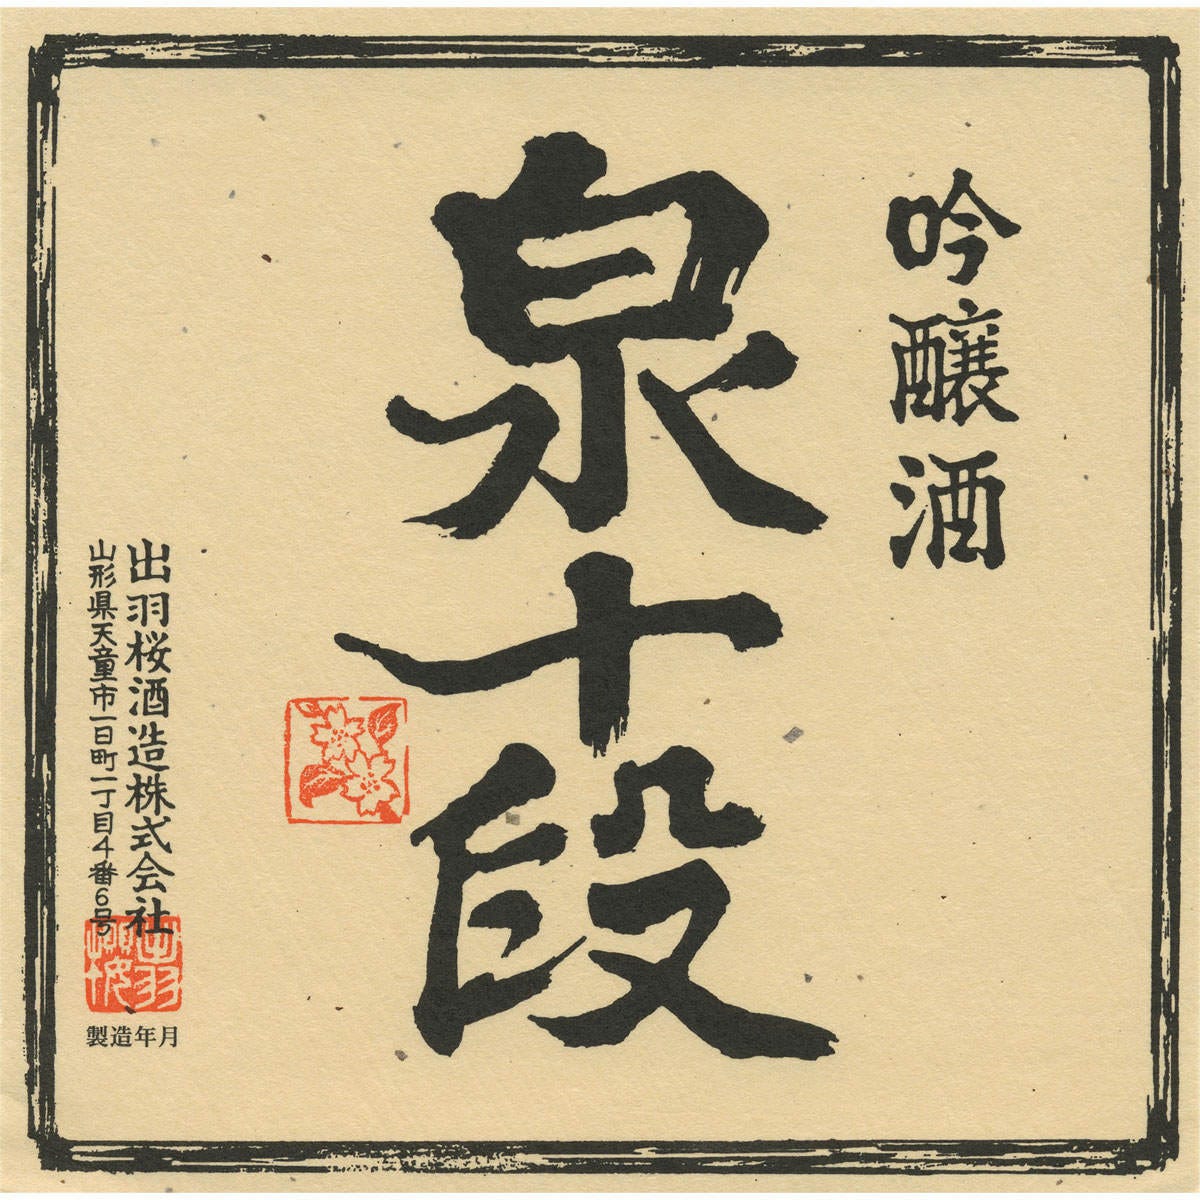 吟醸酒
泉十段
出羽桜酒造株式会社
山形県天童市一日町一丁目4番6号
出羽
桜
製造年月